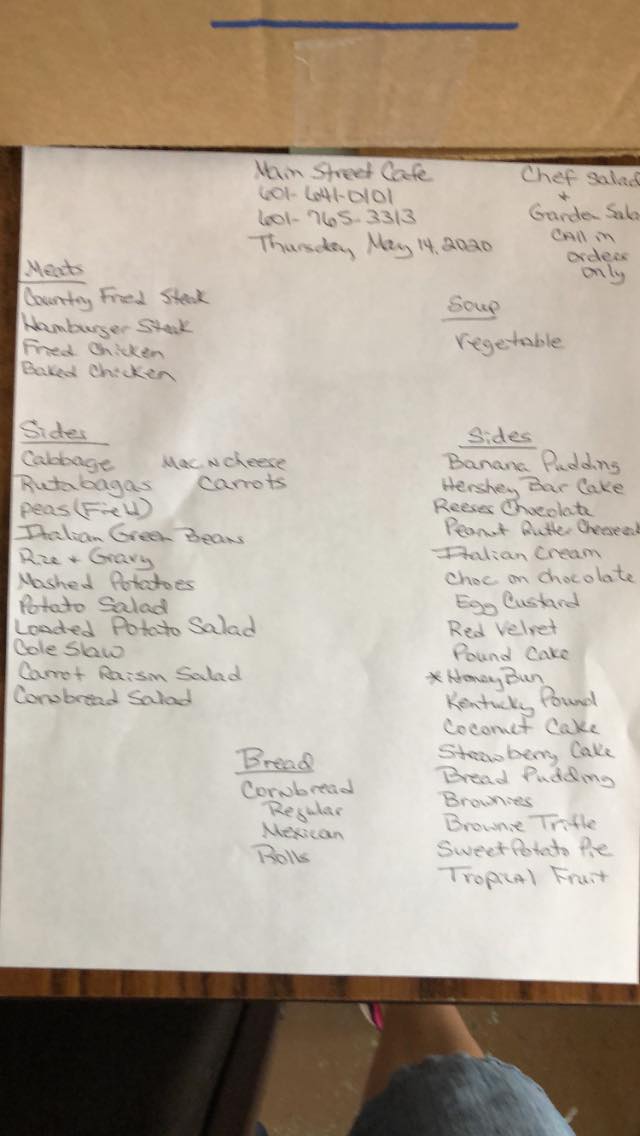 Main Street Cafe
601-641-0101
601-765-3313
Thursday May 14, 2020
Chef Salad
+
Garden Sala
Call in
orders
only
Meats
Country Fried Steak
Hamburger Steak
Fried Chicken
Baked Chicken
Soup
Vegetable
Sides
Cabbage Mac N Cheese
Rutabagas Carrots
Peas (Field)
Italian Green Beans
Rice + Gravy
Mashed Potatoes
Potato Salad
Loaded Potato Salad
Cole Slaw
Carrot Raisin Salad
Cornbread Salad
Bread
Cornbread
Regular
Mexican
Rolls
Sides
Banana Pudding
Hershey Bar Cake
Reeses Chocolate
Peanut Butter Cheeseca
Italian Cream
Choc on Chocolate
Egg Custard
Red Velvet
Pound Cake
*Honey Bun
Kentucky Pound
Coconut Cake
Strawberry Cake
Bread Pudding
Brownies
Brownie Trifle
Sweet Potato Pie
Tropical Fruit